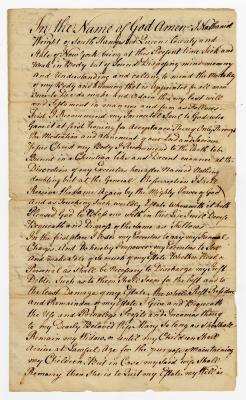 In the Name of God Amen I Nathaniel
Wright of South Hampstead Queens County and
State of New york being at this Present time Sick and
Weak in Body but of Sound Disposing mind memory
And Understanding and calling to mind the Mortality
of my Body and knowing that it is Appointed for all men
Once to Die do make And ordain this my last will
and Testament in manner and form as follows
First I Recommend my Immortal Soul to God who
Gave it at first hoping for Acceptance Thereof Only Through
the Mediation and Attonement of our Lord and Saviour
Jesus Christ my Body I Recommend to the Earth to be
Buried in a Christian like and Decent manner at the
Discretion of my Executors hereafter Named Nothing
doubting but at the General Resurrection I Shall
Receive the Same Again by the Mighty Power of God
and as touching Such worldly Estate wherewith it hath
Pleased God to Bless me with in this Life I will Devise
Bequeath and Dispose of the Same as follows
In the first place I order my Executors to pay my funeral
Charges And Do hereby Impower my Executors to Sell
and make title of So much of my Estate Whether Real or
Personal as Shall be Necessary to Discharge my Just
Debts Such as to them Shall Seem for the best and to
the least Damage of my Estate the whole Rest Residue
and Remainder of my Estate I Give and Bequeath
the Use and Privilege Profits and Incomes thereof
to my Dearly Beloved Wife Mary So long as She Shall
Remain my Widow or until my Children Shall
Arrive at Lawful Age for the purpose of Maintaining
my Children But in Case my Said Wife Shall
Remarry then She is to Quit my Estate my Will is